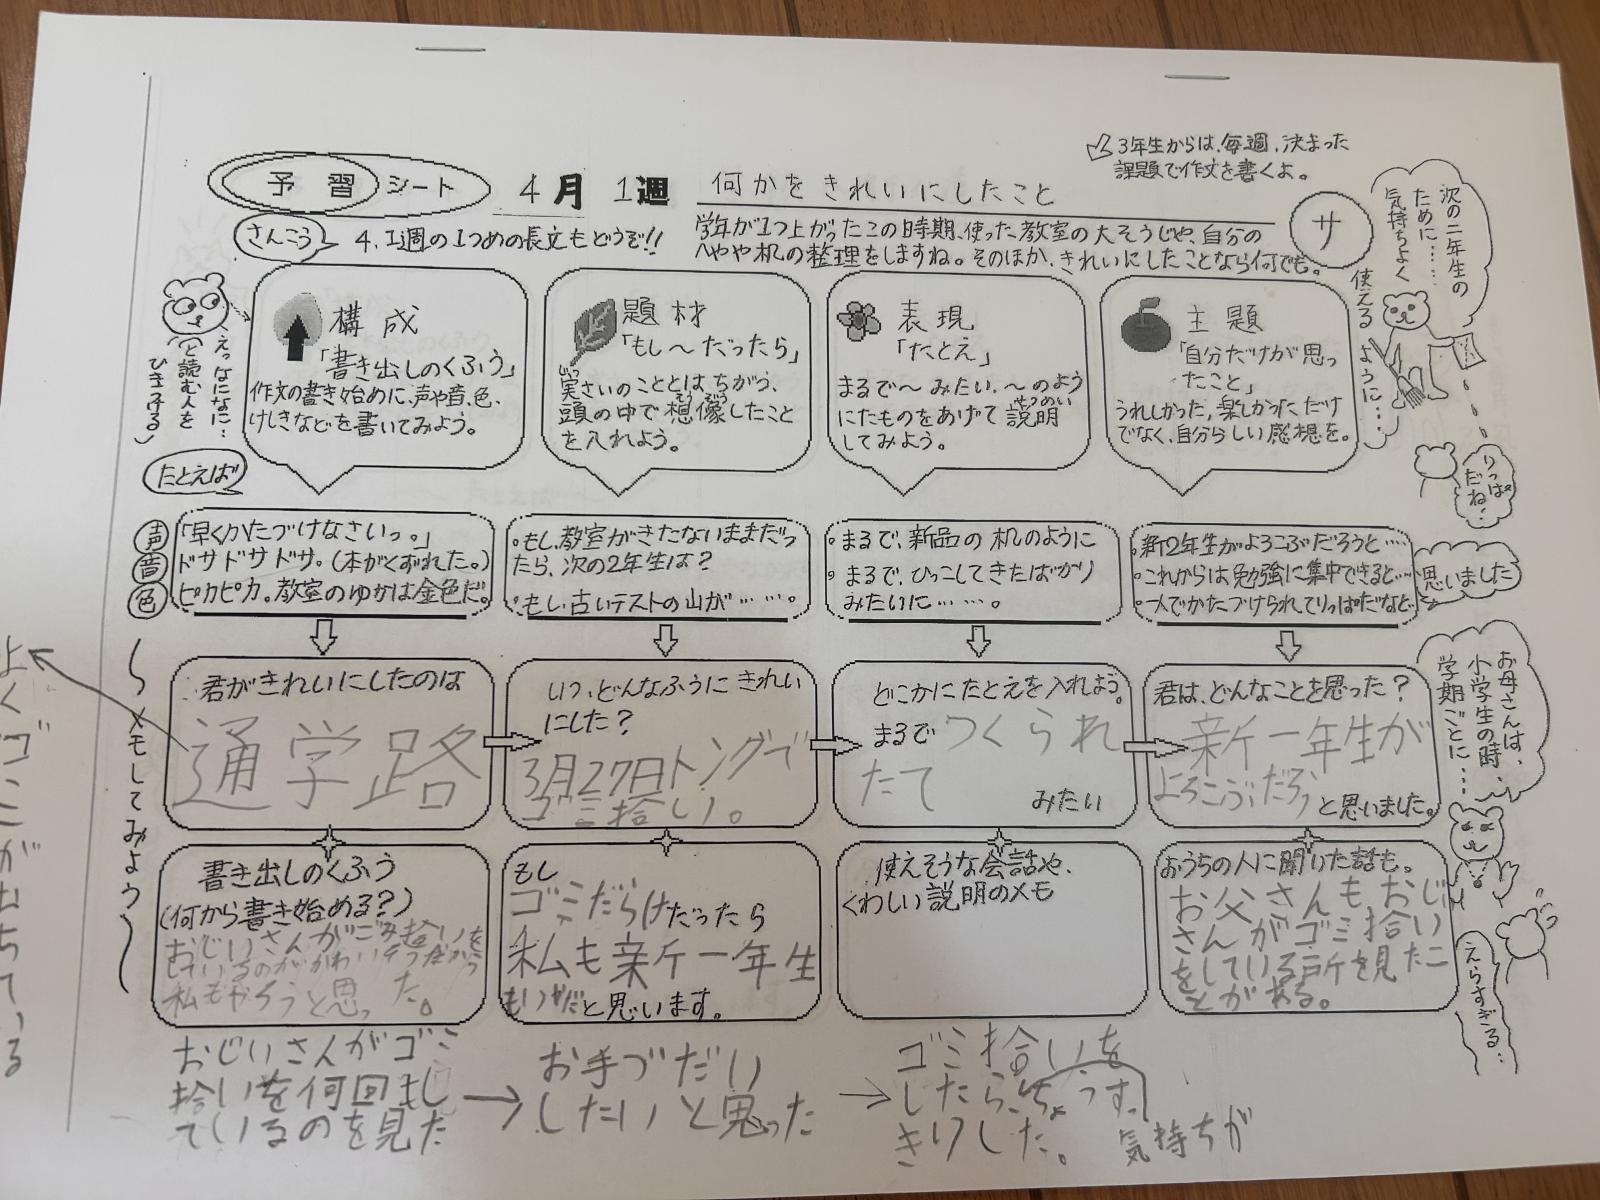 予習シート 4月 1週 何かをきれいにしたこと
3年生からは、毎週、決まった
課題で作文を書くよ。
さんこう
4.1週の1つめの長文もどうぞ!!
学年が1つ上がったこの時期、使った教室の大そうじや、自分の
へやや机の整理をしますね。そのほか、きれいにしたことなら何でも。
サ
次の二年生の
ために……
気持ちよく
使えるように…
りっぱ
だね!
えっなになに…
と読む人を
ひきつける
構成
「書き出しのくふう」
作文の書き始めに、声や音、色、
けしきなどを書いてみよう。
題材
「もし〜だったら」
実さいのこととはちがう、
頭の中で想像したこと
を入れよう。
表現
「たとえ」
まるで〜みたい、〜のよう
にたものをあげて説明
してみよう。
主題
「自分だけが思っ
たこと」
うれしかった、楽しかっただけ
でなく、自分らしい感想を。
たとえば
声
音
色
「早くかたづけなさいっ。」
ドサドサドサ。(本がくずれた。)
ピカピカ。教室のゆかは金色だ。
・もし、教室がきたないままだっ
たら、次の2年生は?
・もし、古いテストの山が……。
・まるで、新品の机のように
・まるで、ひっこしてきたばかり
みたいに……。
・新2年生がよろこぶだろうと…
・これからは勉強に集中できると…
・一人でかたづけられてりっぱだなど…
思いました
〜メモしてみよう〜
君がきれいにしたのは
通学路
いつ、どんなふうにきれい
にした?
3月27日トングで
ゴミ拾い。
どこかにたとえを入れよう。
まるでつくられ
たて
みたい
君は、どんなことを思った?
新一年生が
よろこぶだろう
と思いました。
お母さんは、
小学生の時、
学期ごとに…
書き出しのくふう
(何から書き始める?)
おじいさんがごみ拾いを
しているのが
私もやろうと思った。
もし
ゴミだらけだったら
私も新一年生
もいやだと思います。
使えそうな会話や、
くわしい説明のメモ
おうちの人に聞いた話も。
お父さんもおじい
さんがゴミ拾い
をしている所を見たこ
とがある。
えらすぎる…
おじいさんがゴミ
拾いを何回もし
ているのを見た
→ お手づだい
したいと思った
→ ゴミ拾いを
したら、
きりした。
気持ちが
よくゴミがおちている